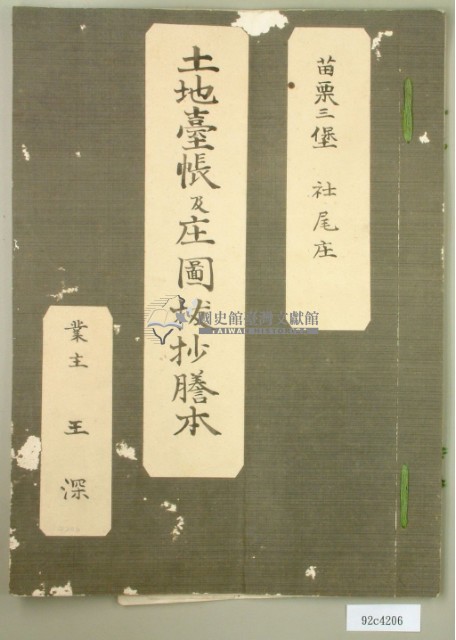 苗栗三堡 社尾庄
土地臺帳及庄圖拔抄謄本
業主 王深
國史館臺灣文獻館
TAIWAN HISTORICA
92c4206